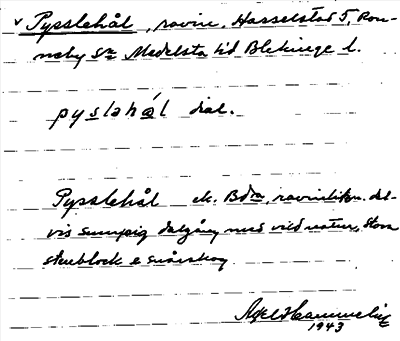 v Pysslehål, ravin, Hasselstad 5, Ron-
neby sn Medelsta hd Blekinge l.
pyslahål dial.
Pysslehål ek. Bdn, ravinlikn. del-
vis sumpig dalgång med vild natur, stora
stenblock o snårskog
Axel Hammelin
1943